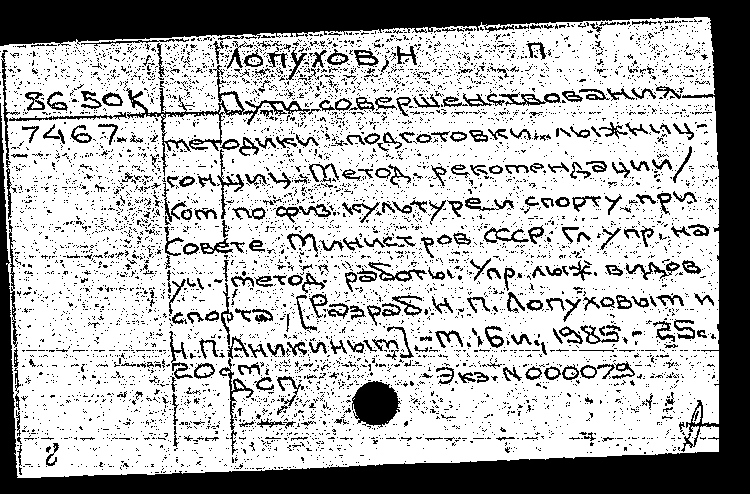 Лопухов, Н П
86-50К Пути совершенствования
7467 методики подготовки лыжниц-
гонщиц. Метод. рекомендации /
Ком. по физ. культуре и спорту при
Совете Министров СССР. Гл. упр. на-
уч.-метод. работы. Упр. лыж. видов
спорта, [Разраб. Н. П. Лопуховым и
Н. П. Аникиным]. - М. Б. и., 1985. - 25с.
20 см.
ДСП. Экз. N 000079.